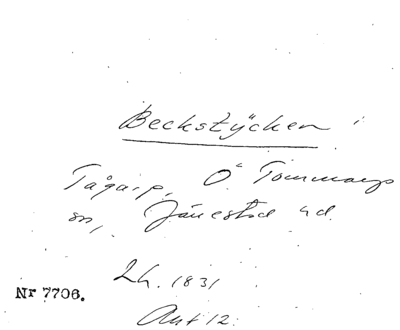 Beckstycken
Tågarp, Ö Tommarps
sn, Järrestad hd.
Lh. 1831
Nr 7706.
Akt 12.